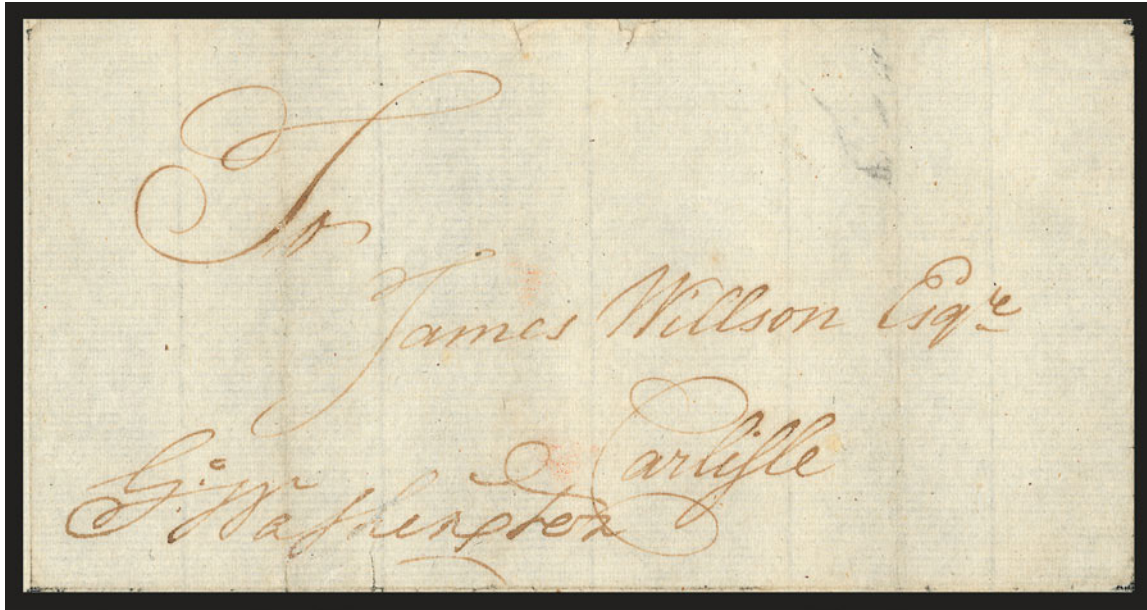 To
James Willson Esqre
Carlisle
Go: Washington